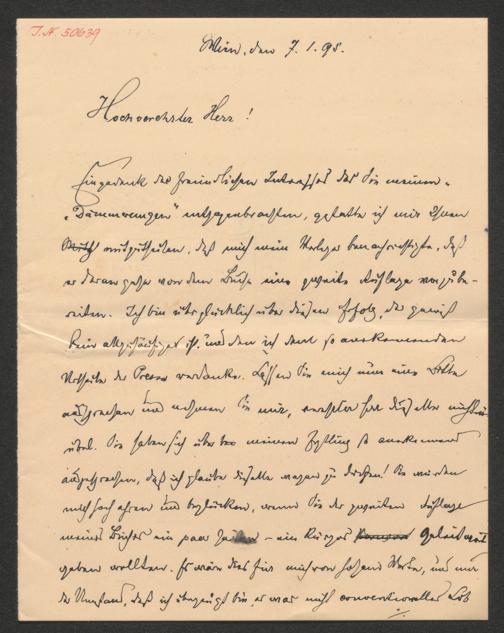 J.N. 50639
Wien, den 7. 1. 95.
Hochverehrter Herr!
Eingedenk des freundlichen Interesses das Sie meinen
"Dämmerungen" entgegenbrachten, gestatte ich mir Ihnen
mitzutheilen, daß mich mein Verleger benachrichtigte, daß
er daran gehe von dem Buche eine zweite Auflage vorzube-
reiten. Ich bin überglücklich über diesen Erfolg, der gewiß
kein allzuhäufiger ist, und den ich dem so anerkennenden
Urtheile der Presse verdanke. Lassen Sie mich nun eine Bitte
aussprechen und nehmen Sie mir, verehrter Herr dieselbe nicht
übel. Sie haben sich über meinen Erstling so anerkennend
ausgesprochen, daß ich glaube dieselbe wagen zu dürfen! Sie würden
mich hoch ehren und beglücken, wenn Sie der zweiten Auflage
meines Buches ein paar Zeilen - ein kurzes Geleitwort
geben wollten. Es wäre dies für mich von hohem Werte, und nur
der Umstand, daß ich überzeugt bin, es war nicht conventionelles Lob